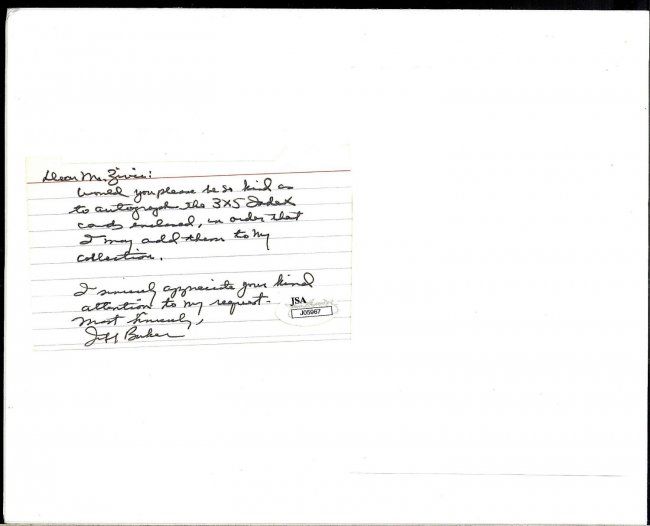 Dear Mr. Zivic:
Would you please be so kind as
to autograph the 3X5 Index
cards enclosed, in order that
I may add them to my
collection.
I sincerely appreciate your kind
attention to my request.
Most Sincerely,
Jeff Baker
JSA
J05967